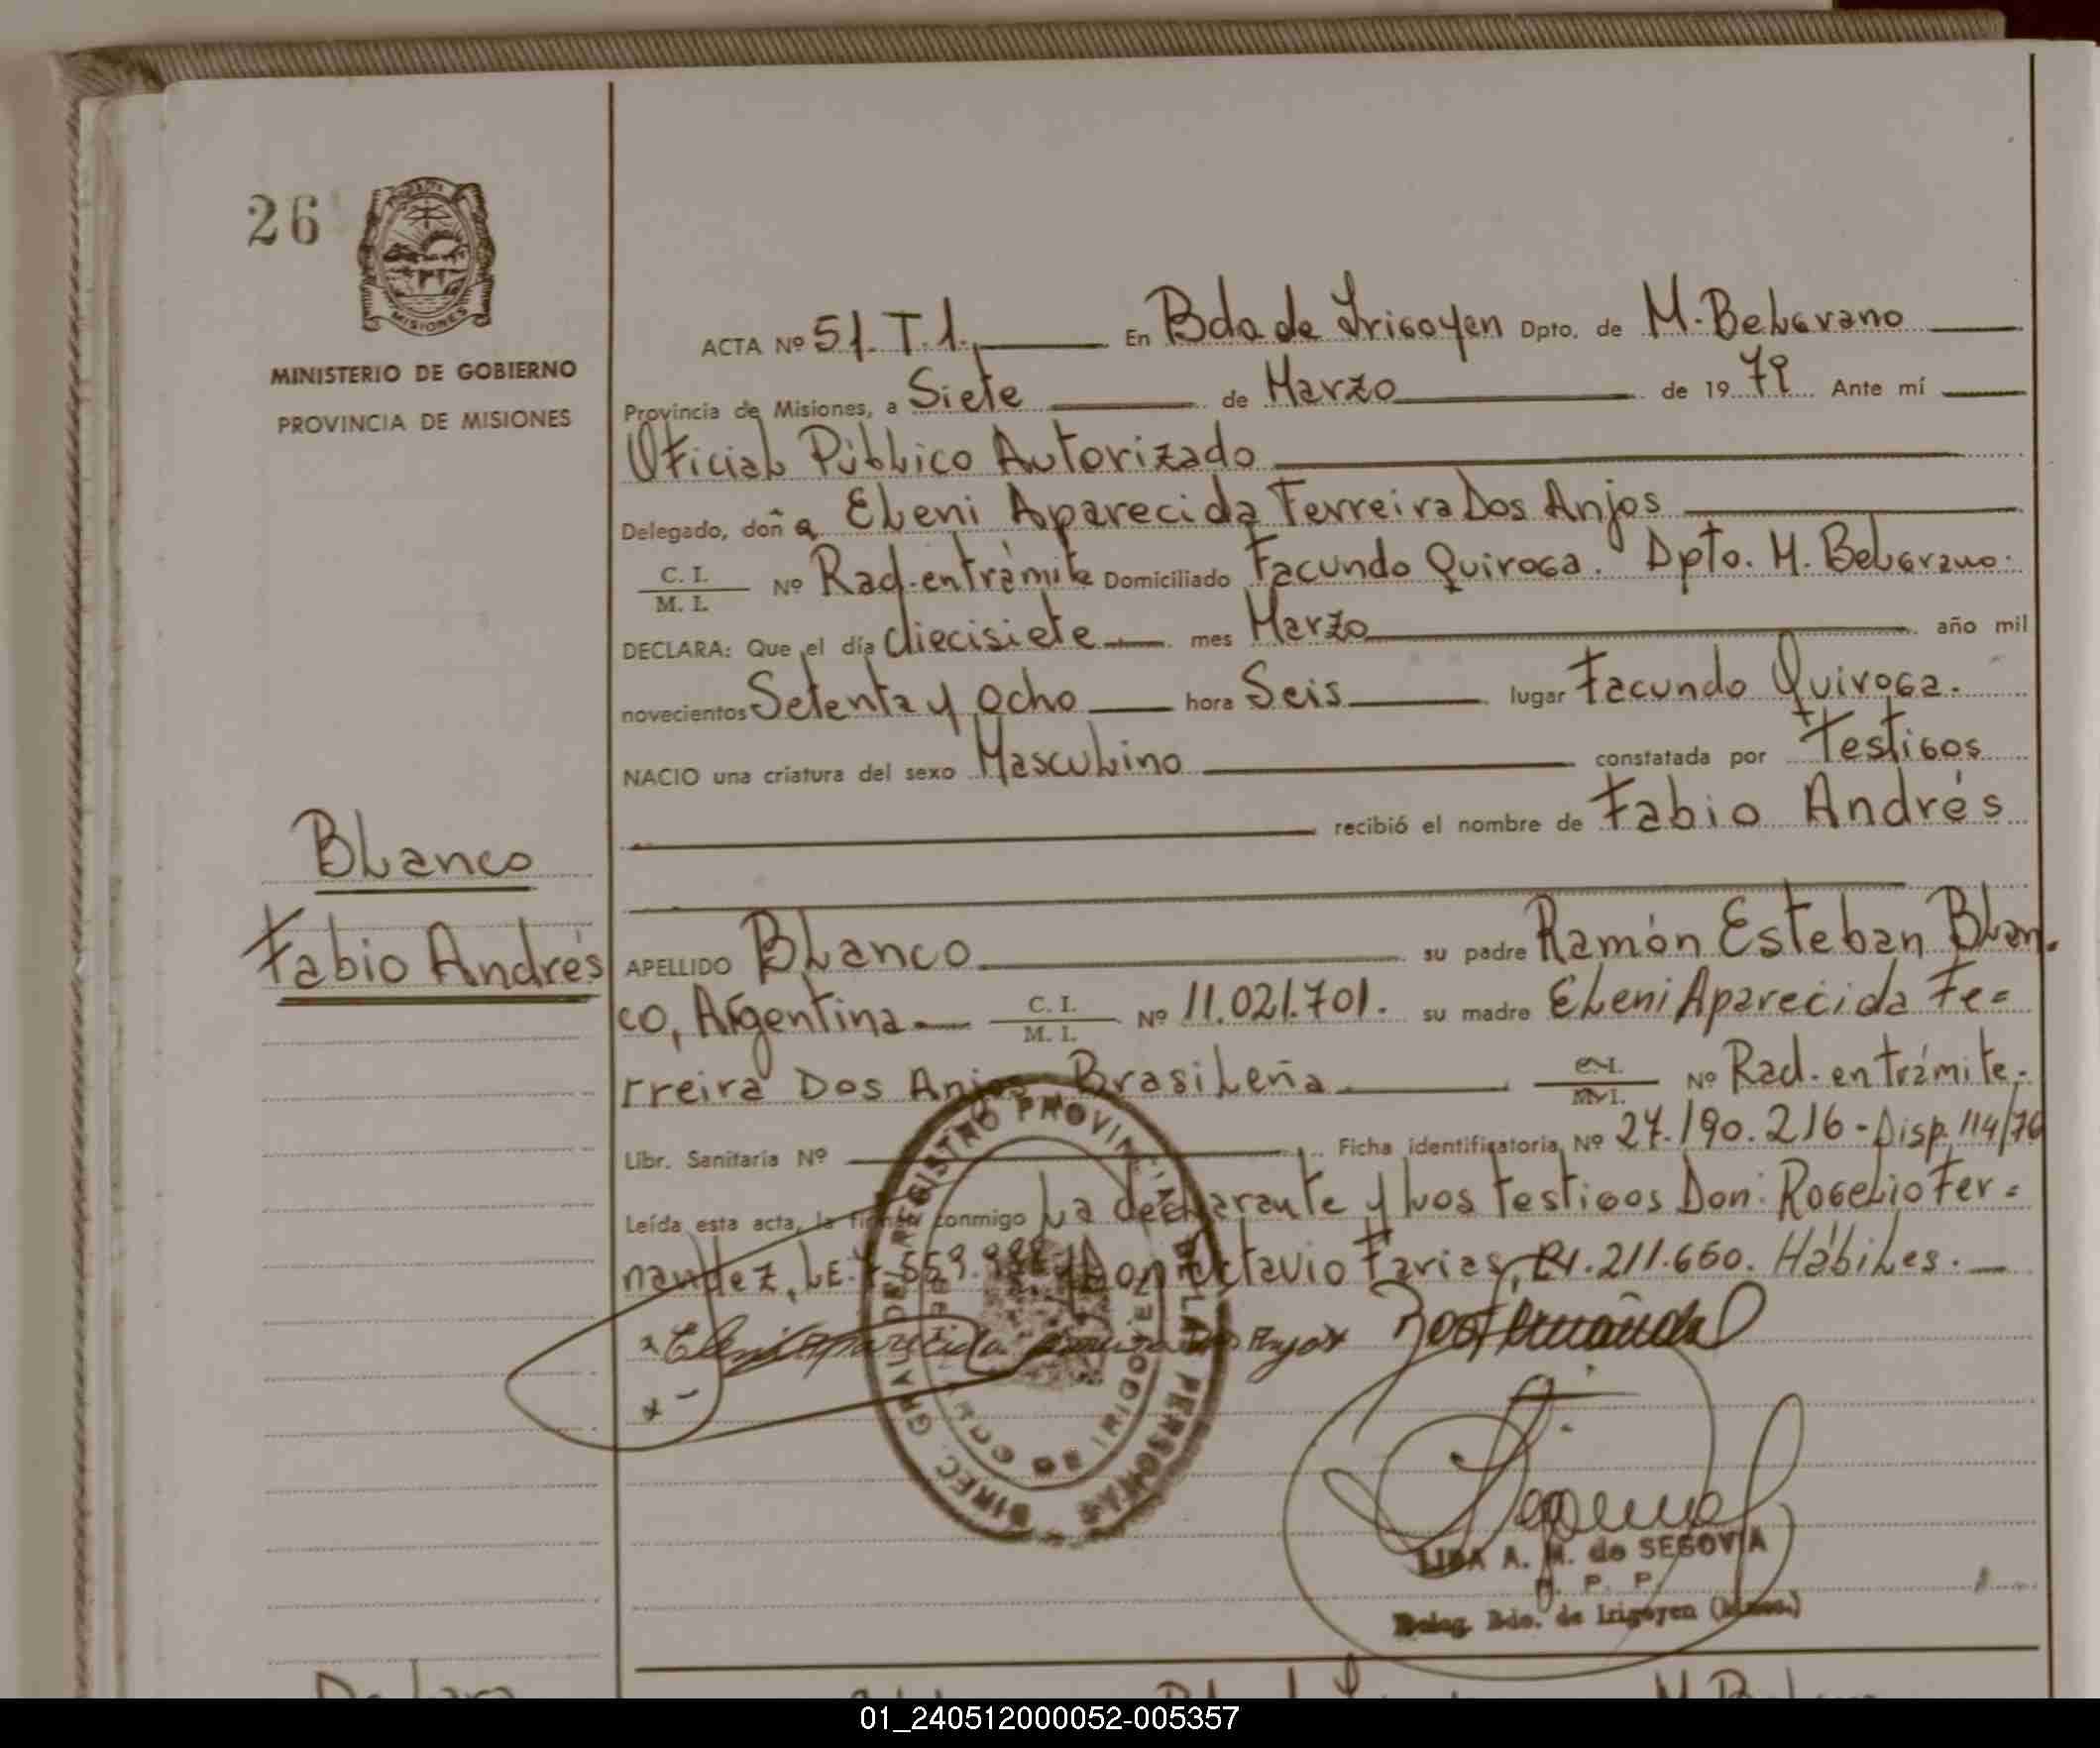 26
MISIONES
MINISTERIO DE GOBIERNO
PROVINCIA DE MISIONES
ACTA Nº 51. T. 1. En Bdo de Irigoyen Dpto. de M. Belgrano
Provincia de Misiones, a Siete de Marzo de 1979 Ante mí
Oficial Público Autorizado
Delegado, doña Eleni Aparecida Ferreira Dos Anjos
C. I. / M. I. Nº Rad. en trámite Domiciliado Facundo Quiroga. Dpto. M. Belgrano.
DECLARA: Que el día diecisiete mes Marzo año mil
novecientos Setenta y Ocho hora Seis lugar Facundo Quiroga.
NACIO una criatura del sexo Masculino constatada por Testigos
recibió el nombre de Fabio Andrés
Blanco
Fabio Andrés
APELLIDO Blanco su padre Ramón Esteban Blan-
co, Argentina C. I. / M. I. Nº 11.021.701. su madre Eleni Aparecida Fe=
rreira Dos Anjos Brasileña C. I. / M. I. Nº Rad. en trámite.
Libr. Sanitaria Nº Ficha identificatoria Nº 27.190.216 - Disp. 114/76
Leída esta acta, la firman conmigo La declarante y los testigos Don: Rogelio Fer=
nandez, L.E. 7.559. y Don Octavio Farias, 211.660. Hábiles.
x Eleni Aparecida Dos Anjos
x -
DIREC. GRAL. DEL REGISTRO PROVINCIAL DE LAS PERSONAS
BDO. DE IRIGOYEN
LIDA A. M. de SEGOVIA
Deleg. Bdo. de Irigoyen (Mnes.)
01_240512000052-005357